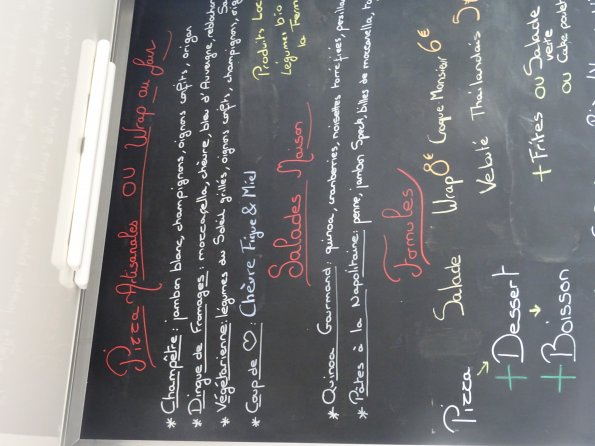 Pizza Artisanales ou Wrap au four
* Champêtre: jambon blanc, champignons, oignons confits, origan
* Dingue de Fromages: mozzapella, chèvre, bleu d'Auvergne, reblochon
* Végétarienne: légumes du Soleil grillés, oignons confits, champignons,
* Coup de ♡: Chèvre Figue & Miel
Produits Loc
Légumes bio
la Ferm
Salades Maison
* Quinoa Gourmand: quinoa, cranberries, noisettes torréfiées,
* Pâtes à la Napolitaine: penne, jambon Speck, billes de mozzarella,
Formules
Pizza Salade Wrap 8€ Croque Monsieur 6€
Velouté Thaïlandais 5
+ Dessert
+ Frites ou Salade verte
ou Cake
+ Boisson